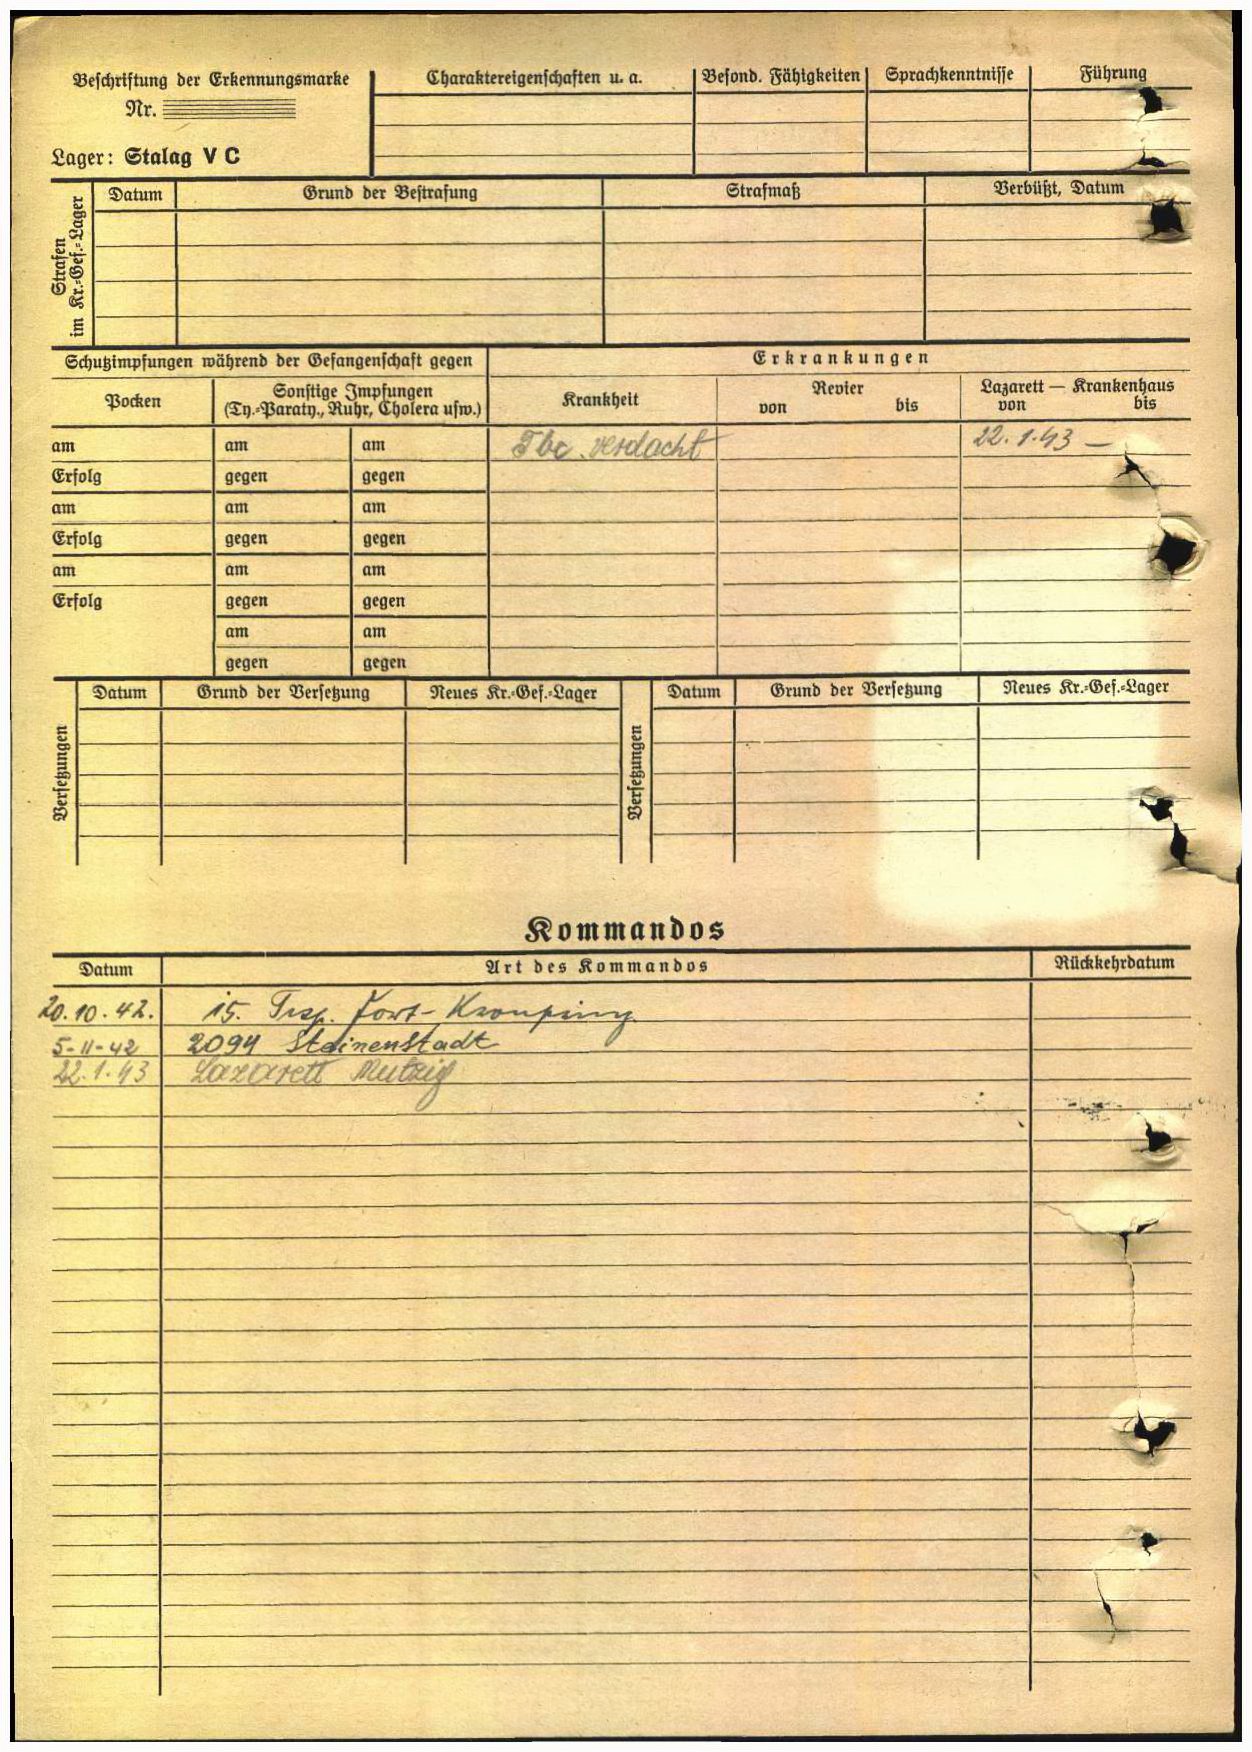 Beschriftung der Erkennungsmarke
Nr.
Lager: Stalag V C
Charaktereigenschaften u. a.
Besond. Fähigkeiten
Sprachkenntnisse
Führung
Strafen
im Kr.=Gef.=Lager
Datum
Grund der Bestrafung
Strafmaß
Verbüßt, Datum
Schutzimpfungen während der Gefangenschaft gegen
Erkrankungen
Pocken
Sonstige Impfungen
(Ty.=Paraty., Ruhr, Cholera usw.)
Krankheit
Revier
von bis
Lazarett — Krankenhaus
von bis
am am am Tbc. verdacht 22.1.43 —
Erfolg gegen gegen
am am am
Erfolg gegen gegen
am am am
Erfolg gegen gegen
am am
gegen gegen
Versetzungen
Datum Grund der Versetzung Neues Kr.=Gef.=Lager
Versetzungen
Datum Grund der Versetzung Neues Kr.=Gef.=Lager
Kommandos
Datum Art des Kommandos Rückkehrdatum
20.10.42. 15. Trsp. Fort-
5-11-42 2094 Steinenstadt
22.1.43 Lazarett Mutzig